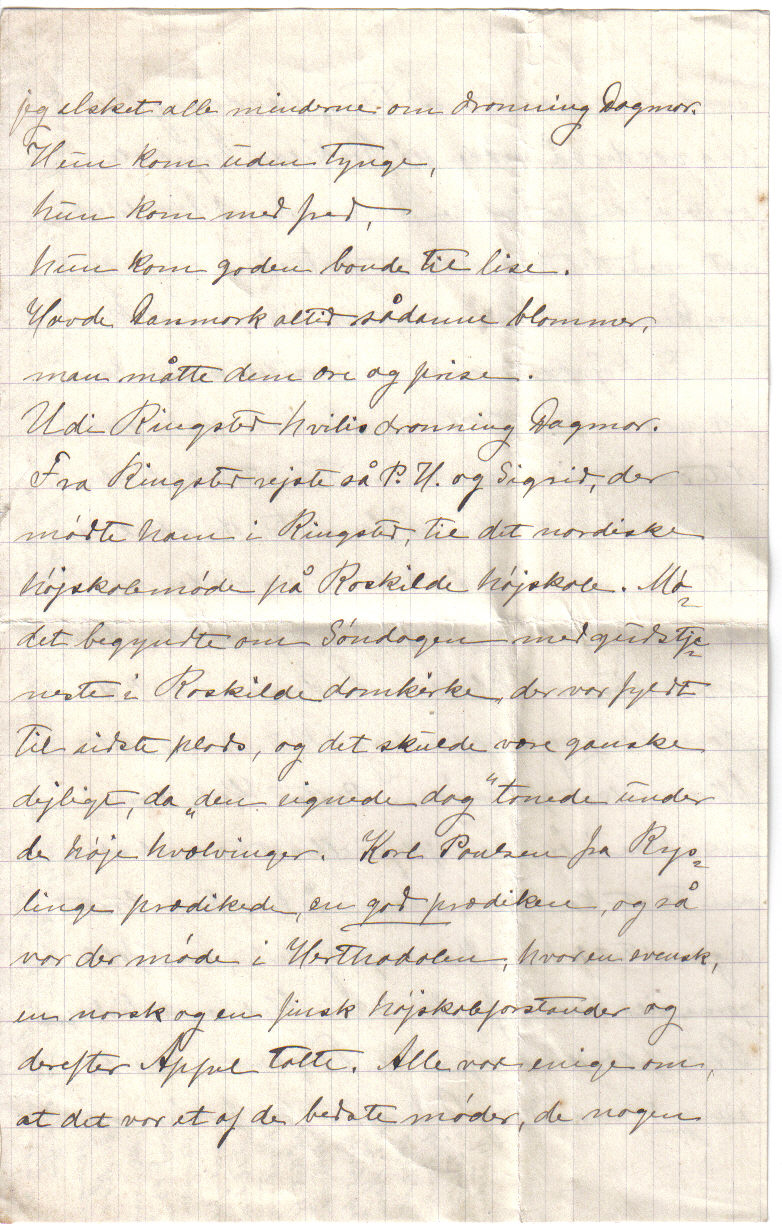 jeg elsket alle minderne om dronning Dagmar.
Hun kom uden tynge,
hun kom med fred,
hun kom goden bonde til lise.
Havde Danmark altid sådanne blommer,
man måtte dem ære og prise.
Udi Ringsted hvilis dronning Dagmar.
Fra Ringsted rejste så P. H. og Sigrid, der
mødte ham i Ringsted, til det nordiske
højskolemøde på Roskilde højskole. Mø=
det begyndte om Søndagen med gudstje=
neste i Roskilde domkirke, der var fyldt
til sidste plads, og det skulde være ganske
dejligt, da „den signede dag" tonede under
de høje hvælvinger. Karl Poulsen fra Rys=
linge prædikede, en god prædiken, og så
var der møde i Herthadalen, hvor en svensk,
en norsk og en finsk højskoleforstander og
derefter Appel talte. Alle var enige om,
at det var et af de bedste møder, de nogen